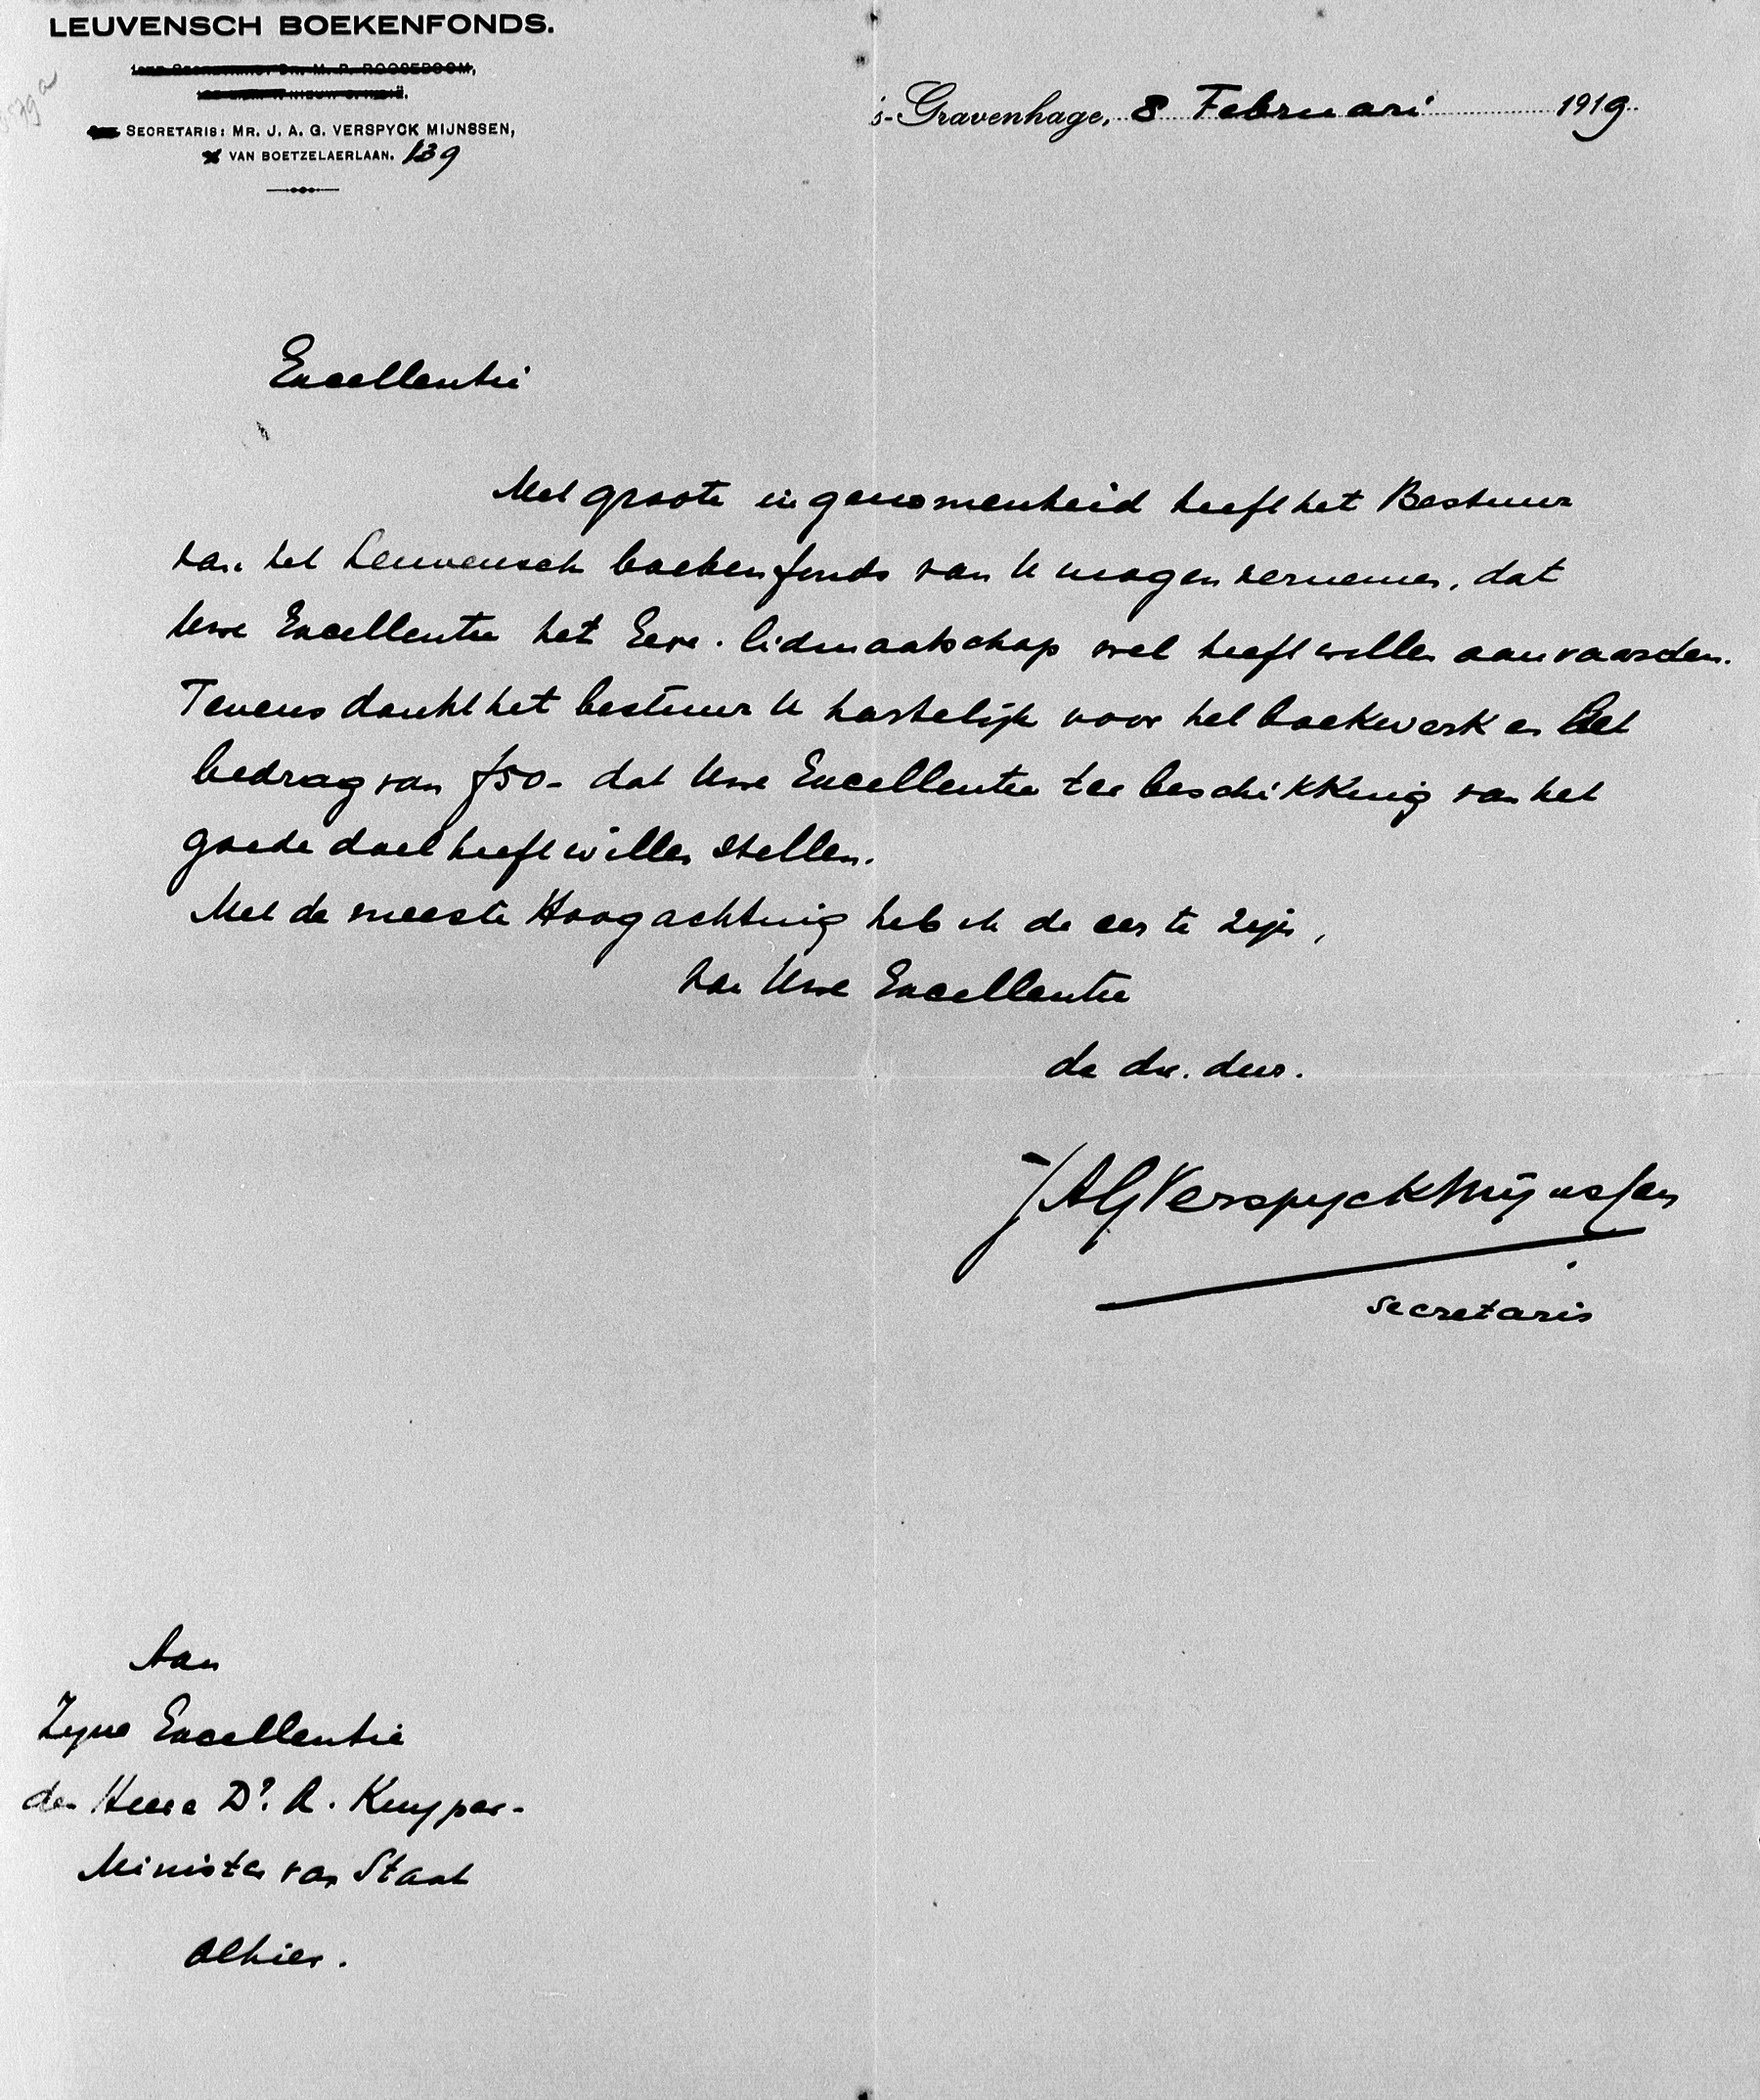 LEUVENSCH BOEKENFONDS.
SECRETARIS: MR. J. A. G. VERSPYCK MIJNSSEN,
VAN BOETZELAERLAAN. 139
's-Gravenhage, 8 Februari 1919.
Excellentie
Met groote ingenomenheid heeft het Bestuur
van het Leuvensch boekenfonds van U mogen vernemen, dat
Uwe Excellentie het Eere-lidmaatschap wel heeft willen aanvaarden.
Tevens dankt het bestuur U hartelijk voor het boekwerk en het
bedrag van f50- dat Uwe Excellentie ter beschikking van het
goede doel heeft willen stellen.
Met de meeste Hoogachting heb ik de eer te zijn,
Van Uwe Excellentie
de dw. dnr.
JAGVerspyckMijnssen
secretaris
Aan
Zijne Excellentie
den Heere Dr. A. Kuyper-
Minister van Staat
alhier.